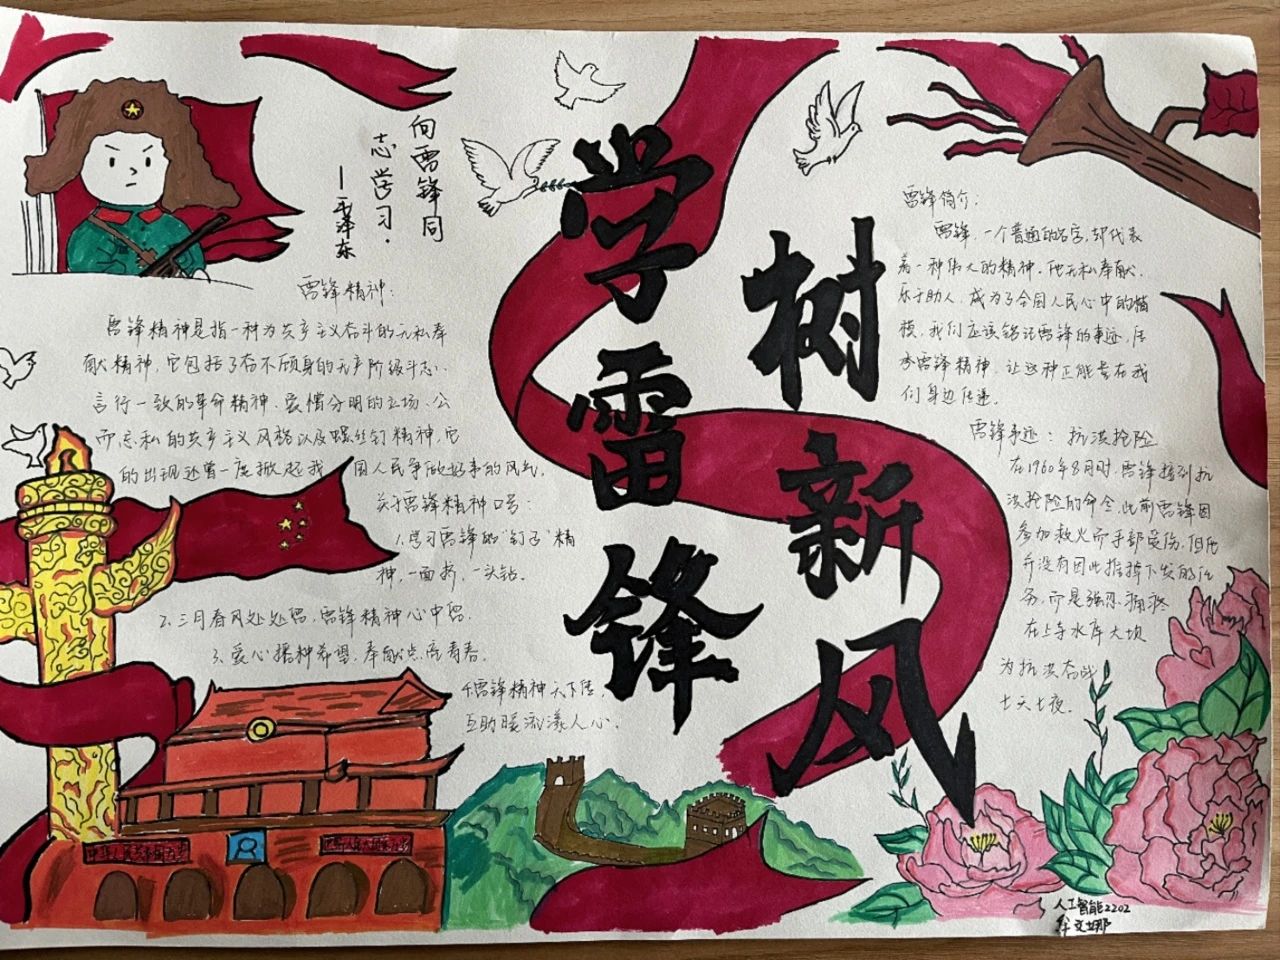 向雷锋同
志学习.
——毛泽东
雷锋精神:
雷锋精神是指一种为共产主义奋斗的无私奉
献精神,它包括了奋不顾身的无产阶级斗志、
言行一致的革命精神、爱憎分明的立场、公
而忘私的共产主义风格以及螺丝钉精神,它
的出现还曾一度掀起我国人民争做好事的风气.
关于雷锋精神口号:
1.学习雷锋的“钉子”精
神,一面挤,一头钻.
2.三月春风处处留,雷锋精神心中留.
3.爱心播种希望,奉献点亮青春.
4雷锋精神天下传,
互助暖流漾人心.
学雷锋
树新风
雷锋简介:
雷锋,一个普通的名字,却代表
着一种伟大的精神.他无私奉献,
乐于助人,成为了全国人民心中的楷
模,我们应该铭记雷锋的事迹,传
承雷锋精神,让这种正能量在我
们身边传递。
雷锋事迹:抗洪抢险
在1960年8月时,雷锋接到抗
洪抢险的命令,此前雷锋因
参加救火而手部受伤,但他
并没有因此推掉下发的任
务,而是强忍
在上寺水库大坝
为抗洪奋战
七天七夜.
人工智能2202